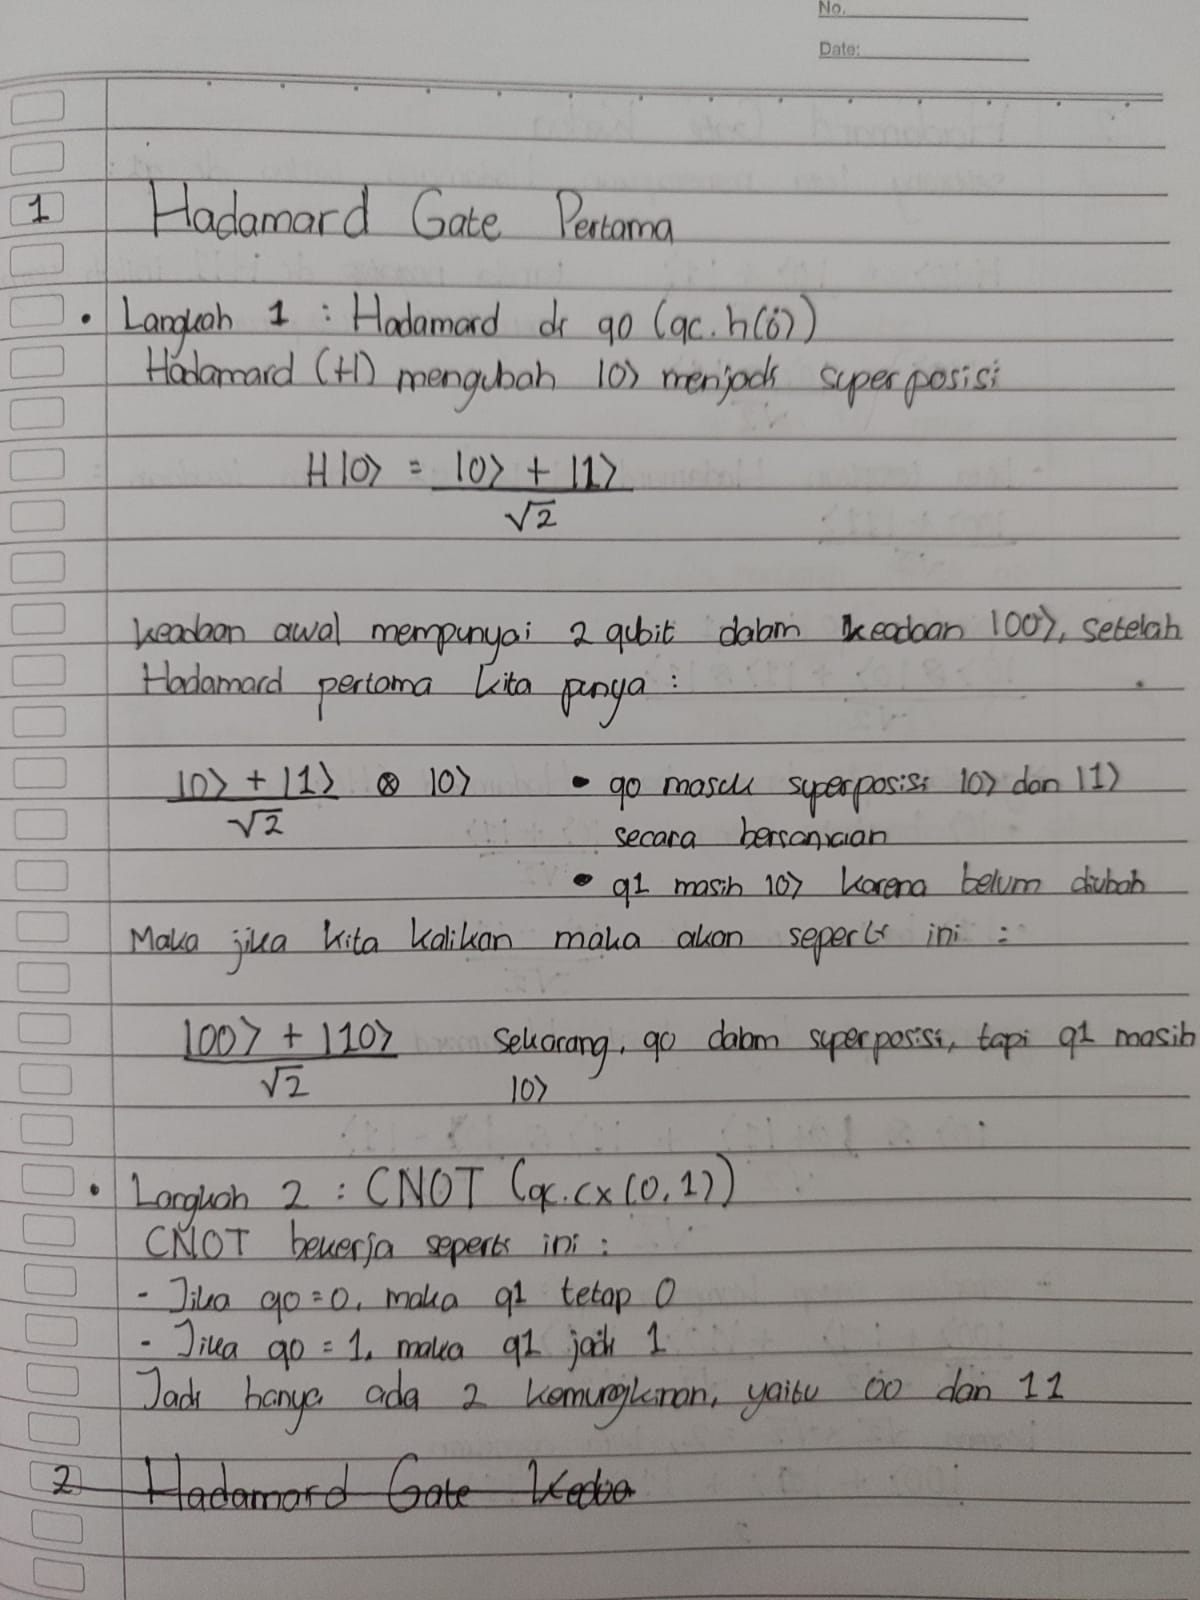 No.
Date:
1 Hadamard Gate Pertama
• Langkah 1 : Hadamard di q0 (qc.h(0))
Hadamard (H) mengubah |0⟩ menjadi superposisi
H|0⟩ = |0⟩ + |1⟩
√2
keadaan awal mempunyai 2 qubit dalam keadaan |00⟩, setelah
Hadamard pertama kita punya :
|0⟩ + |1⟩ ⊗ |0⟩ • q0 masuk superposisi |0⟩ dan |1⟩
√2 secara bersamaan
• q1 masih |0⟩ karena belum diubah
Maka jika kita kalikan maka akan seperti ini :
|00⟩ + |10⟩ Sekarang, q0 dalam superposisi, tapi q1 masih
√2 |0⟩
• Langkah 2 : CNOT (qc.cx(0,1))
CNOT bekerja seperti ini :
- Jika q0 = 0, maka q1 tetap 0
- Jika q0 = 1, maka q1 jadi 1
Jadi hanya ada 2 kemungkinan, yaitu 00 dan 11
2 Hadamard Gate Kedua